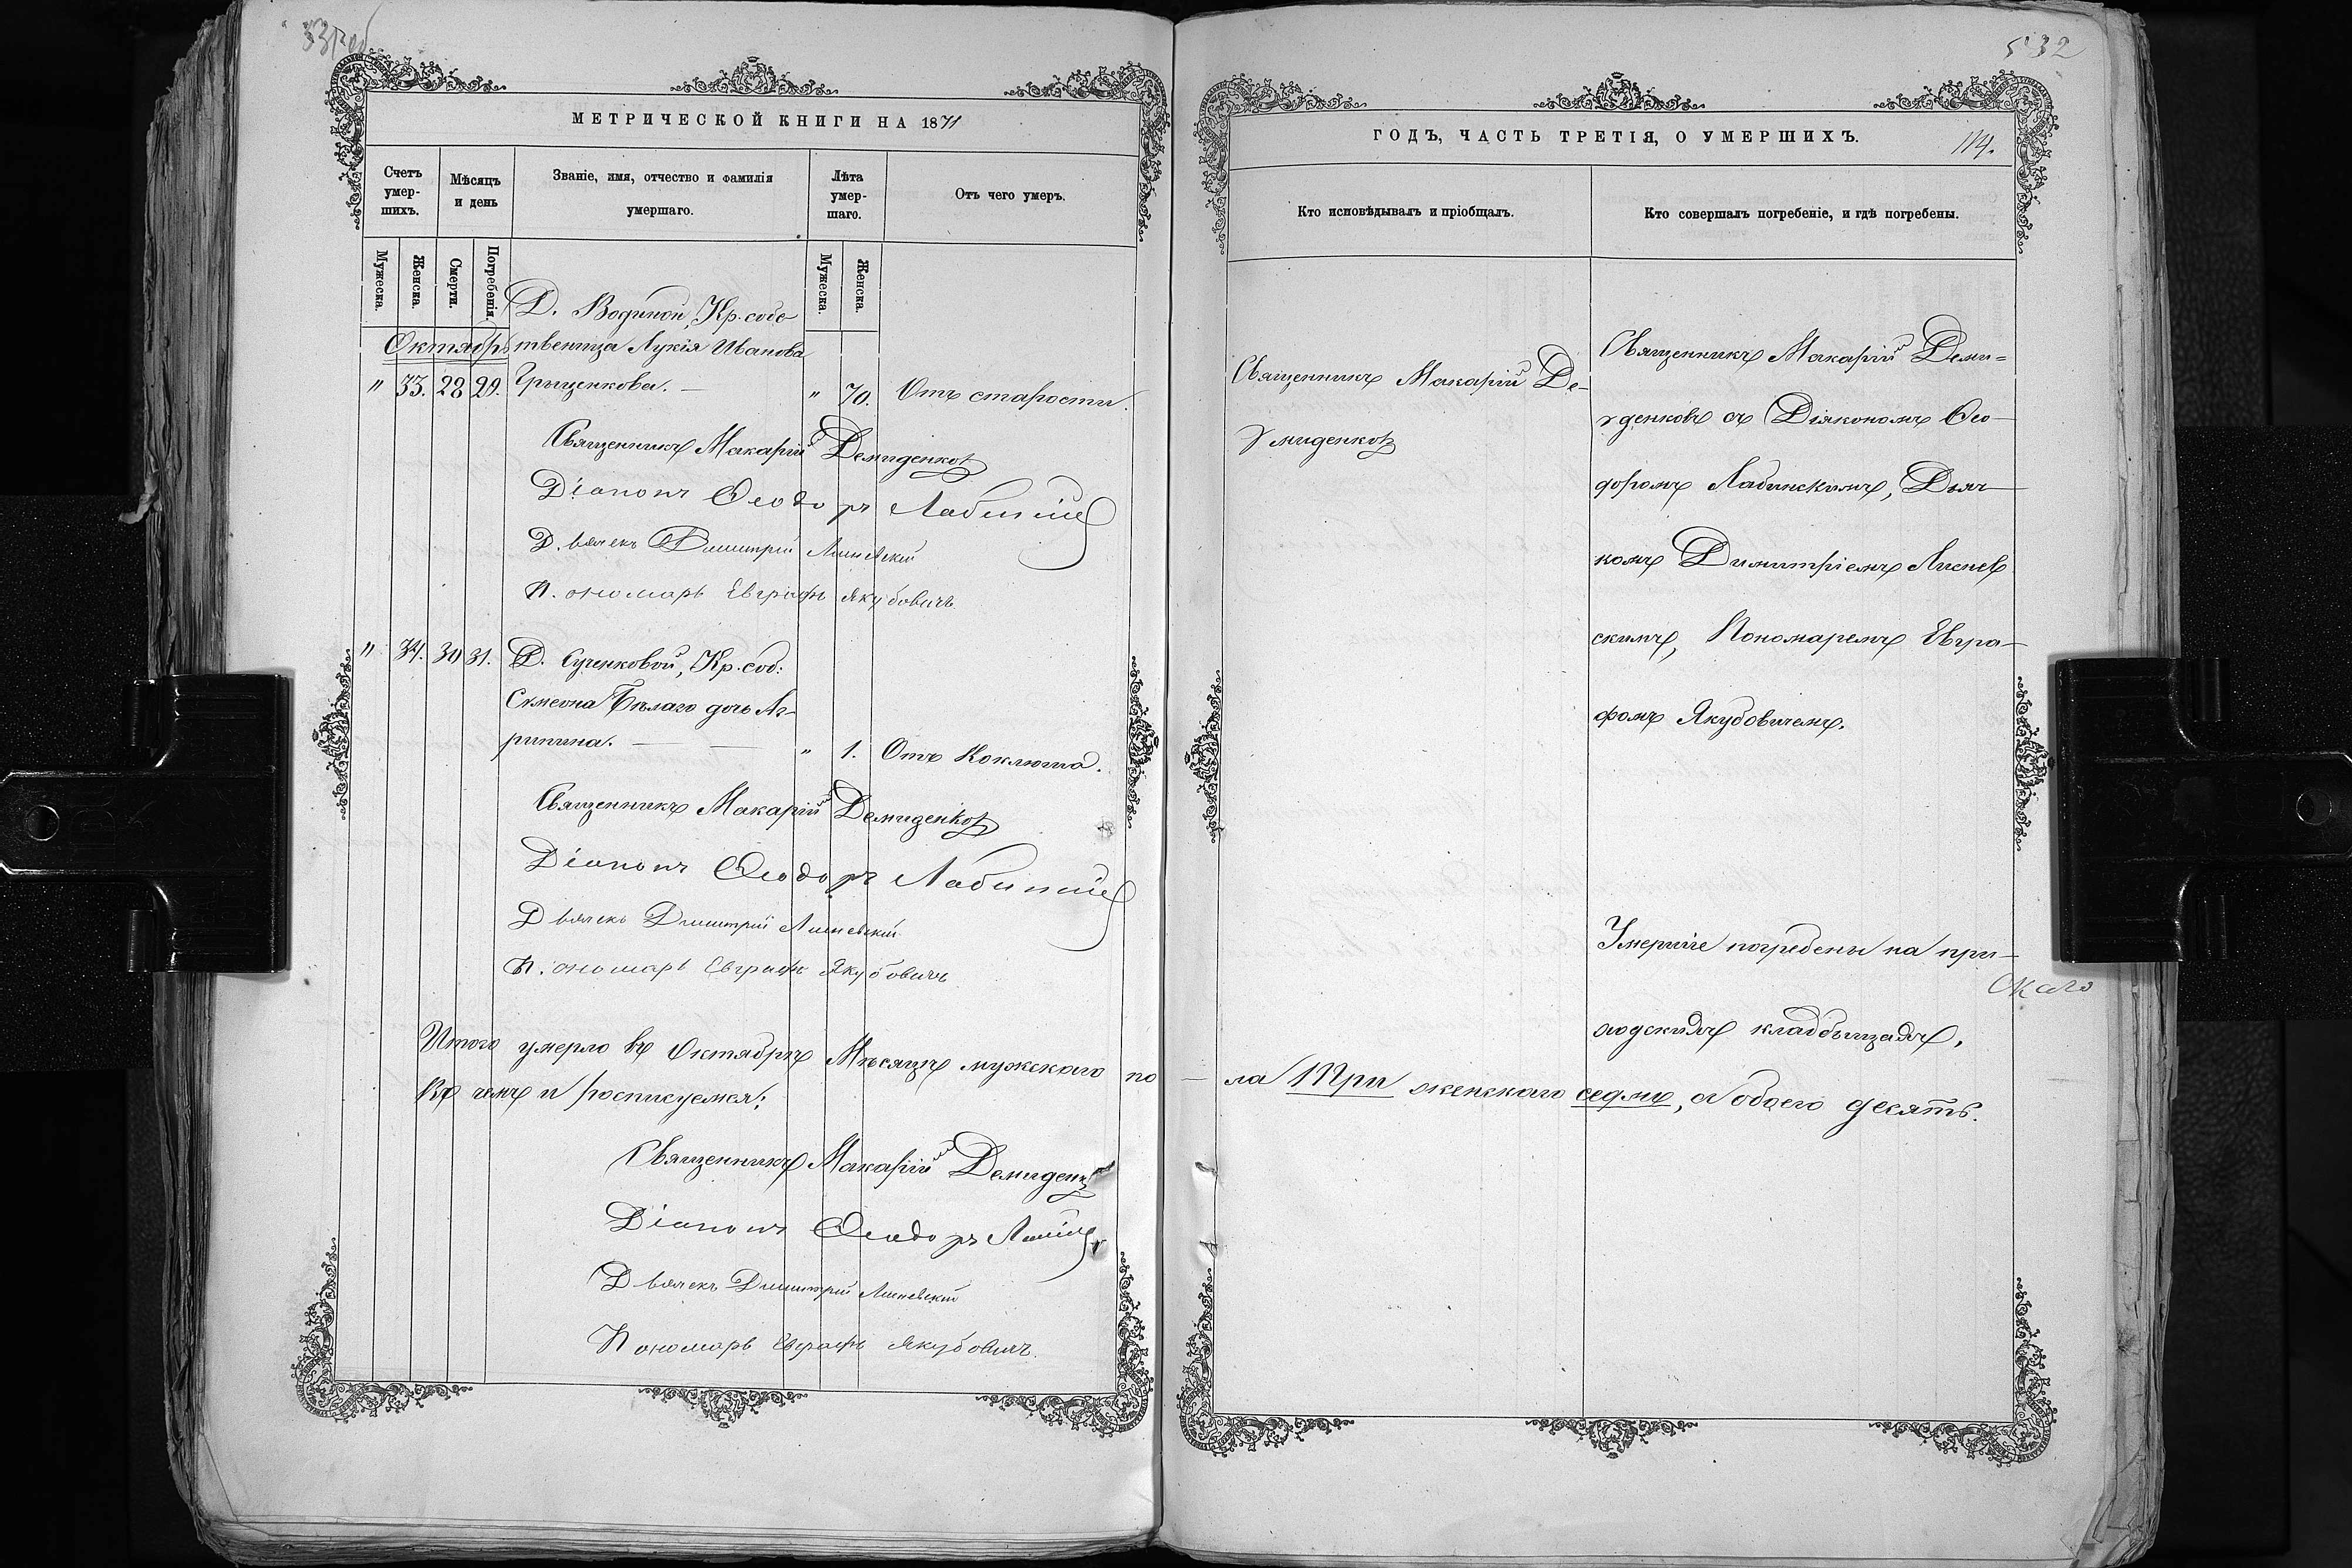 МЕТРИЧЕСКОЙ КНИГИ НА 1871
Счетъ умер-шихъ.
Мѣсяцъ и день
Званіе, имя, отчество и фамилія умершаго.
Лѣта умер-шаго.
Отъ чего умеръ.
Мужеска.
Женска.
Смерти.
Погребенія.
Мужеска.
Женска.
Д. Водиной, Кр. собс
Октябрь
твеница Лукія Иванова
" 33. 28 29. Грищенкова. — " 70. Отъ старости.
Священникъ Макарій Демиденковъ
Діаконъ Ѳеодоръ Лабинскій
Дьячекъ Димитрій Лисневскій
Пономарь Евграфъ Якубовичъ
" 34. 30 31. Д. Сученковой, Кр. соб:
Симеона Бѣлаго дочь Аг-
рипина. — — " 1. Отъ Коклюша.
Священникъ Макарій Демиденковъ
Діаконъ Ѳеодоръ Лабинскій
Дьячекъ Димитрій Лисневскій
Пономарь Евграфъ Якубовичъ
Итого умерло въ Октябрѣ Мѣсяцѣ мужскаго по
Въ чемъ и росписуемся:
Священникъ Макарій Демиденковъ
Діаконъ Ѳеодоръ
Дьячекъ Димитрій Лисневскій
Пономарь Евграфъ Якубовичъ
532
ГОДЪ, ЧАСТЬ ТРЕТІЯ, О УМЕРШИХЪ.
114.
Кто исповѣдывалъ и пріобщалъ.
Кто совершалъ погребеніе, и гдѣ погребены.
Священникъ Макарій Де-
миденковъ
Священникъ Макарій Деми=
денковъ съ Діякономъ Ѳео-
доромъ Лабинскимъ, Дьяч
комъ Димитріемъ Лиснев
скимъ, Пономаремъ Евгра-
фомъ Якубовичемъ.
Умершіе погребены на при-
ходскихъ кладбищахъ.
ла Три женскаго седмь, обоего десять.